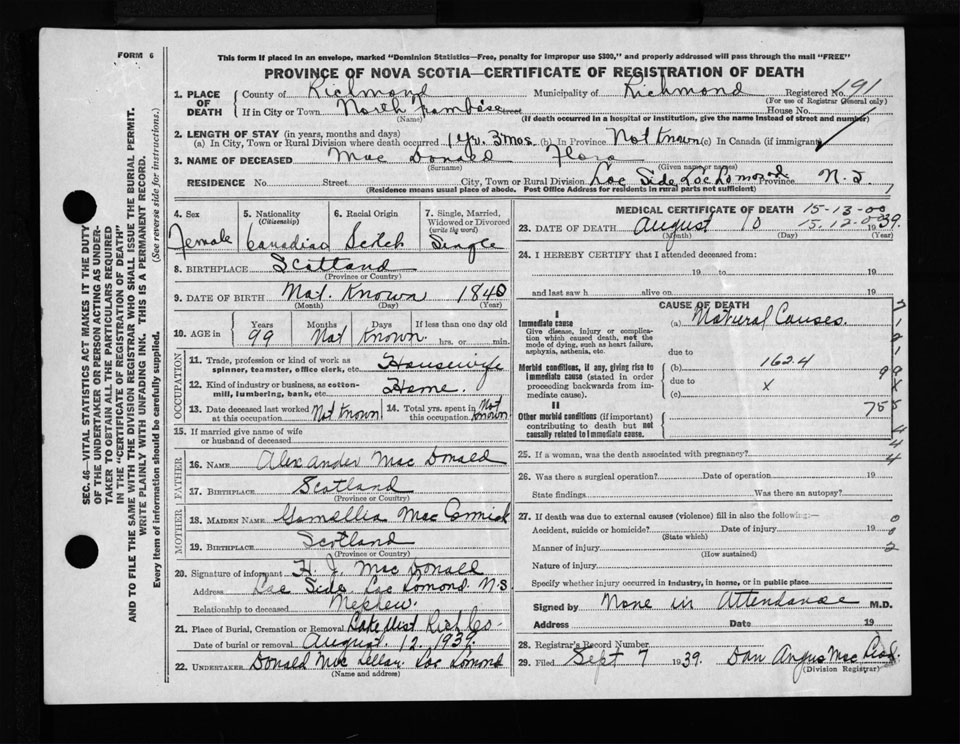 FORM 6
This form if placed in an envelope, marked "Dominion Statistics—Free, penalty for improper use $300," and properly addressed will pass through the mail "FREE"
PROVINCE OF NOVA SCOTIA—CERTIFICATE OF REGISTRATION OF DEATH
SEC. 46—VITAL STATISTICS ACT MAKES IT THE DUTY
OF THE UNDERTAKER OR PERSON ACTING AS UNDER-
TAKER TO OBTAIN ALL THE PARTICULARS REQUIRED
IN THE "CERTIFICATE OF REGISTRATION OF DEATH"
AND TO FILE THE SAME WITH THE DIVISION REGISTRAR WHO SHALL ISSUE THE BURIAL PERMIT.
WRITE PLAINLY WITH UNFADING INK. THIS IS A PERMANENT RECORD.
Every item of information should be carefully supplied. (See reverse side for instructions.)
1. PLACE OF DEATH
County of Richmond Municipality of Richmond Registered No. 191
(For use of Registrar General only)
If in City or Town North Framboise Street House No.
(Name) (If death occurred in a hospital or institution, give the name instead of street and number)
2. LENGTH OF STAY (in years, months and days)
(a) In City, Town or Rural Division where death occurred 1 Yr. 3 Mos. (b) In Province Not Known (c) In Canada (if immigrant)
3. NAME OF DECEASED Mac Donald Flora
(Surname) (Given name or names)
RESIDENCE No. Street City, Town or Rural Division Loc Side Loc Lomond Province N.S.
(Residence means usual place of abode. Post Office Address for residents in rural parts not sufficient)
4. Sex Female
5. Nationality (Citizenship) Canadian
6. Racial Origin Scotch
7. Single, Married, Widowed or Divorced (write the word) Single
8. BIRTHPLACE Scotland
(Province or Country)
9. DATE OF BIRTH Not Known 1840
(Month) (Day) (Year)
10. AGE in Years 99 Months Not Days Known If less than one day old hrs. or min.
OCCUPATION
11. Trade, profession or kind of work as spinner, teamster, office clerk, etc. Housewife
12. Kind of industry or business, as cotton-mill, lumbering, bank, etc. Home.
13. Date deceased last worked at this occupation Not Known
14. Total yrs. spent in this occupation Not Known
15. If married give name of wife or husband of deceased
FATHER
16. NAME Alexander Mac Donald
17. BIRTHPLACE Scotland
(Province or Country)
MOTHER
18. MAIDEN NAME Mac Cormick
19. BIRTHPLACE Scotland
(Province or Country)
20. Signature of informant H. J. Mac Donald
Address Loc Side Loc Lomond N.S.
Relationship to deceased Nephew.
21. Place of Burial, Cremation or Removal Lake Uist Rich Co.
Date of burial or removal August. 12. 1939.
22. UNDERTAKER Donald Mac Lellan Loc Lomond
(Name and address)
MEDICAL CERTIFICATE OF DEATH 15-13-00
15.12.00
23. DATE OF DEATH August 10 1939.
(Month) (Day) (Year)
24. I HEREBY CERTIFY that I attended deceased from:
19 to 19
and last saw h alive on 19
CAUSE OF DEATH
I
Immediate cause
Give disease, injury or complication which caused death, not the mode of dying, such as heart failure, asphyxia, asthenia, etc.
(a) Natural Causes.
due to
Morbid conditions, if any, giving rise to immediate cause (stated in order proceeding backwards from immediate cause).
(b) 162.4
due to x
(c)
II
Other morbid conditions (if important) contributing to death but not causally related to immediate cause.
25. If a woman, was the death associated with pregnancy?
26. Was there a surgical operation? Date of operation 19
State findings Was there an autopsy?
27. If death was due to external causes (violence) fill in also the following:—
Accident, suicide or homicide? Date of injury 19
(State which)
Manner of injury
(How sustained)
Nature of injury
Specify whether injury occurred in industry, in home, or in public place
Signed by None in Attendance M.D.
Address Date 19
28. Registrar's Record Number
29. Filed Sept 7 1939. Dan Angus Mac Leod.
(Division Registrar)